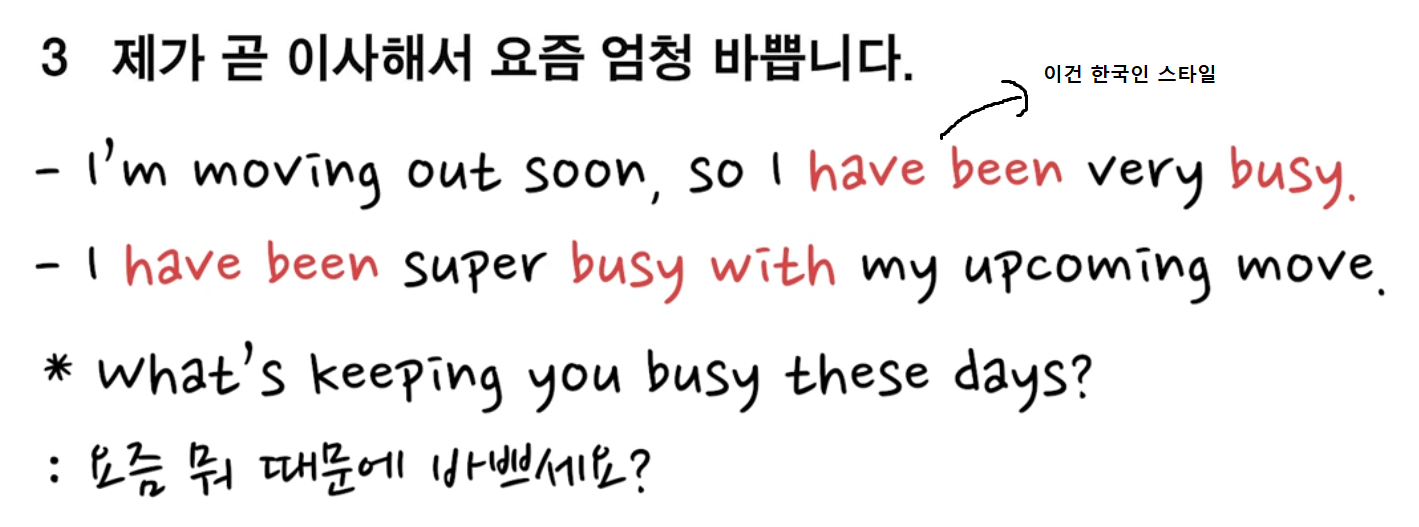 3 제가 곧 이사해서 요즘 엄청 바쁩니다.
이건 한국인 스타일
- I'm moving out soon, so I have been very busy.
- I have been super busy with my upcoming move.
* What's keeping you busy these days?
: 요즘 뭐 때문에 바쁘세요?